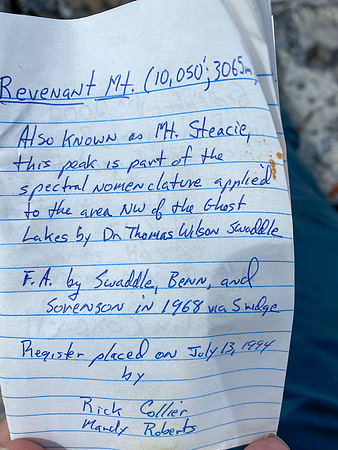 Revenant Mt. (10,050'; 3065m)
Also known as Mt. Steacie,
this peak is part of the
spectral nomenclature applied
to the area NW of the Ghost
Lakes by Dr. Thomas Wilson Swaddle
F.A. by Swaddle, Benn, and
Sorenson in 1968 via S ridge
Register placed on July 13, 1994
by
Rick Collier
Mandy Roberts